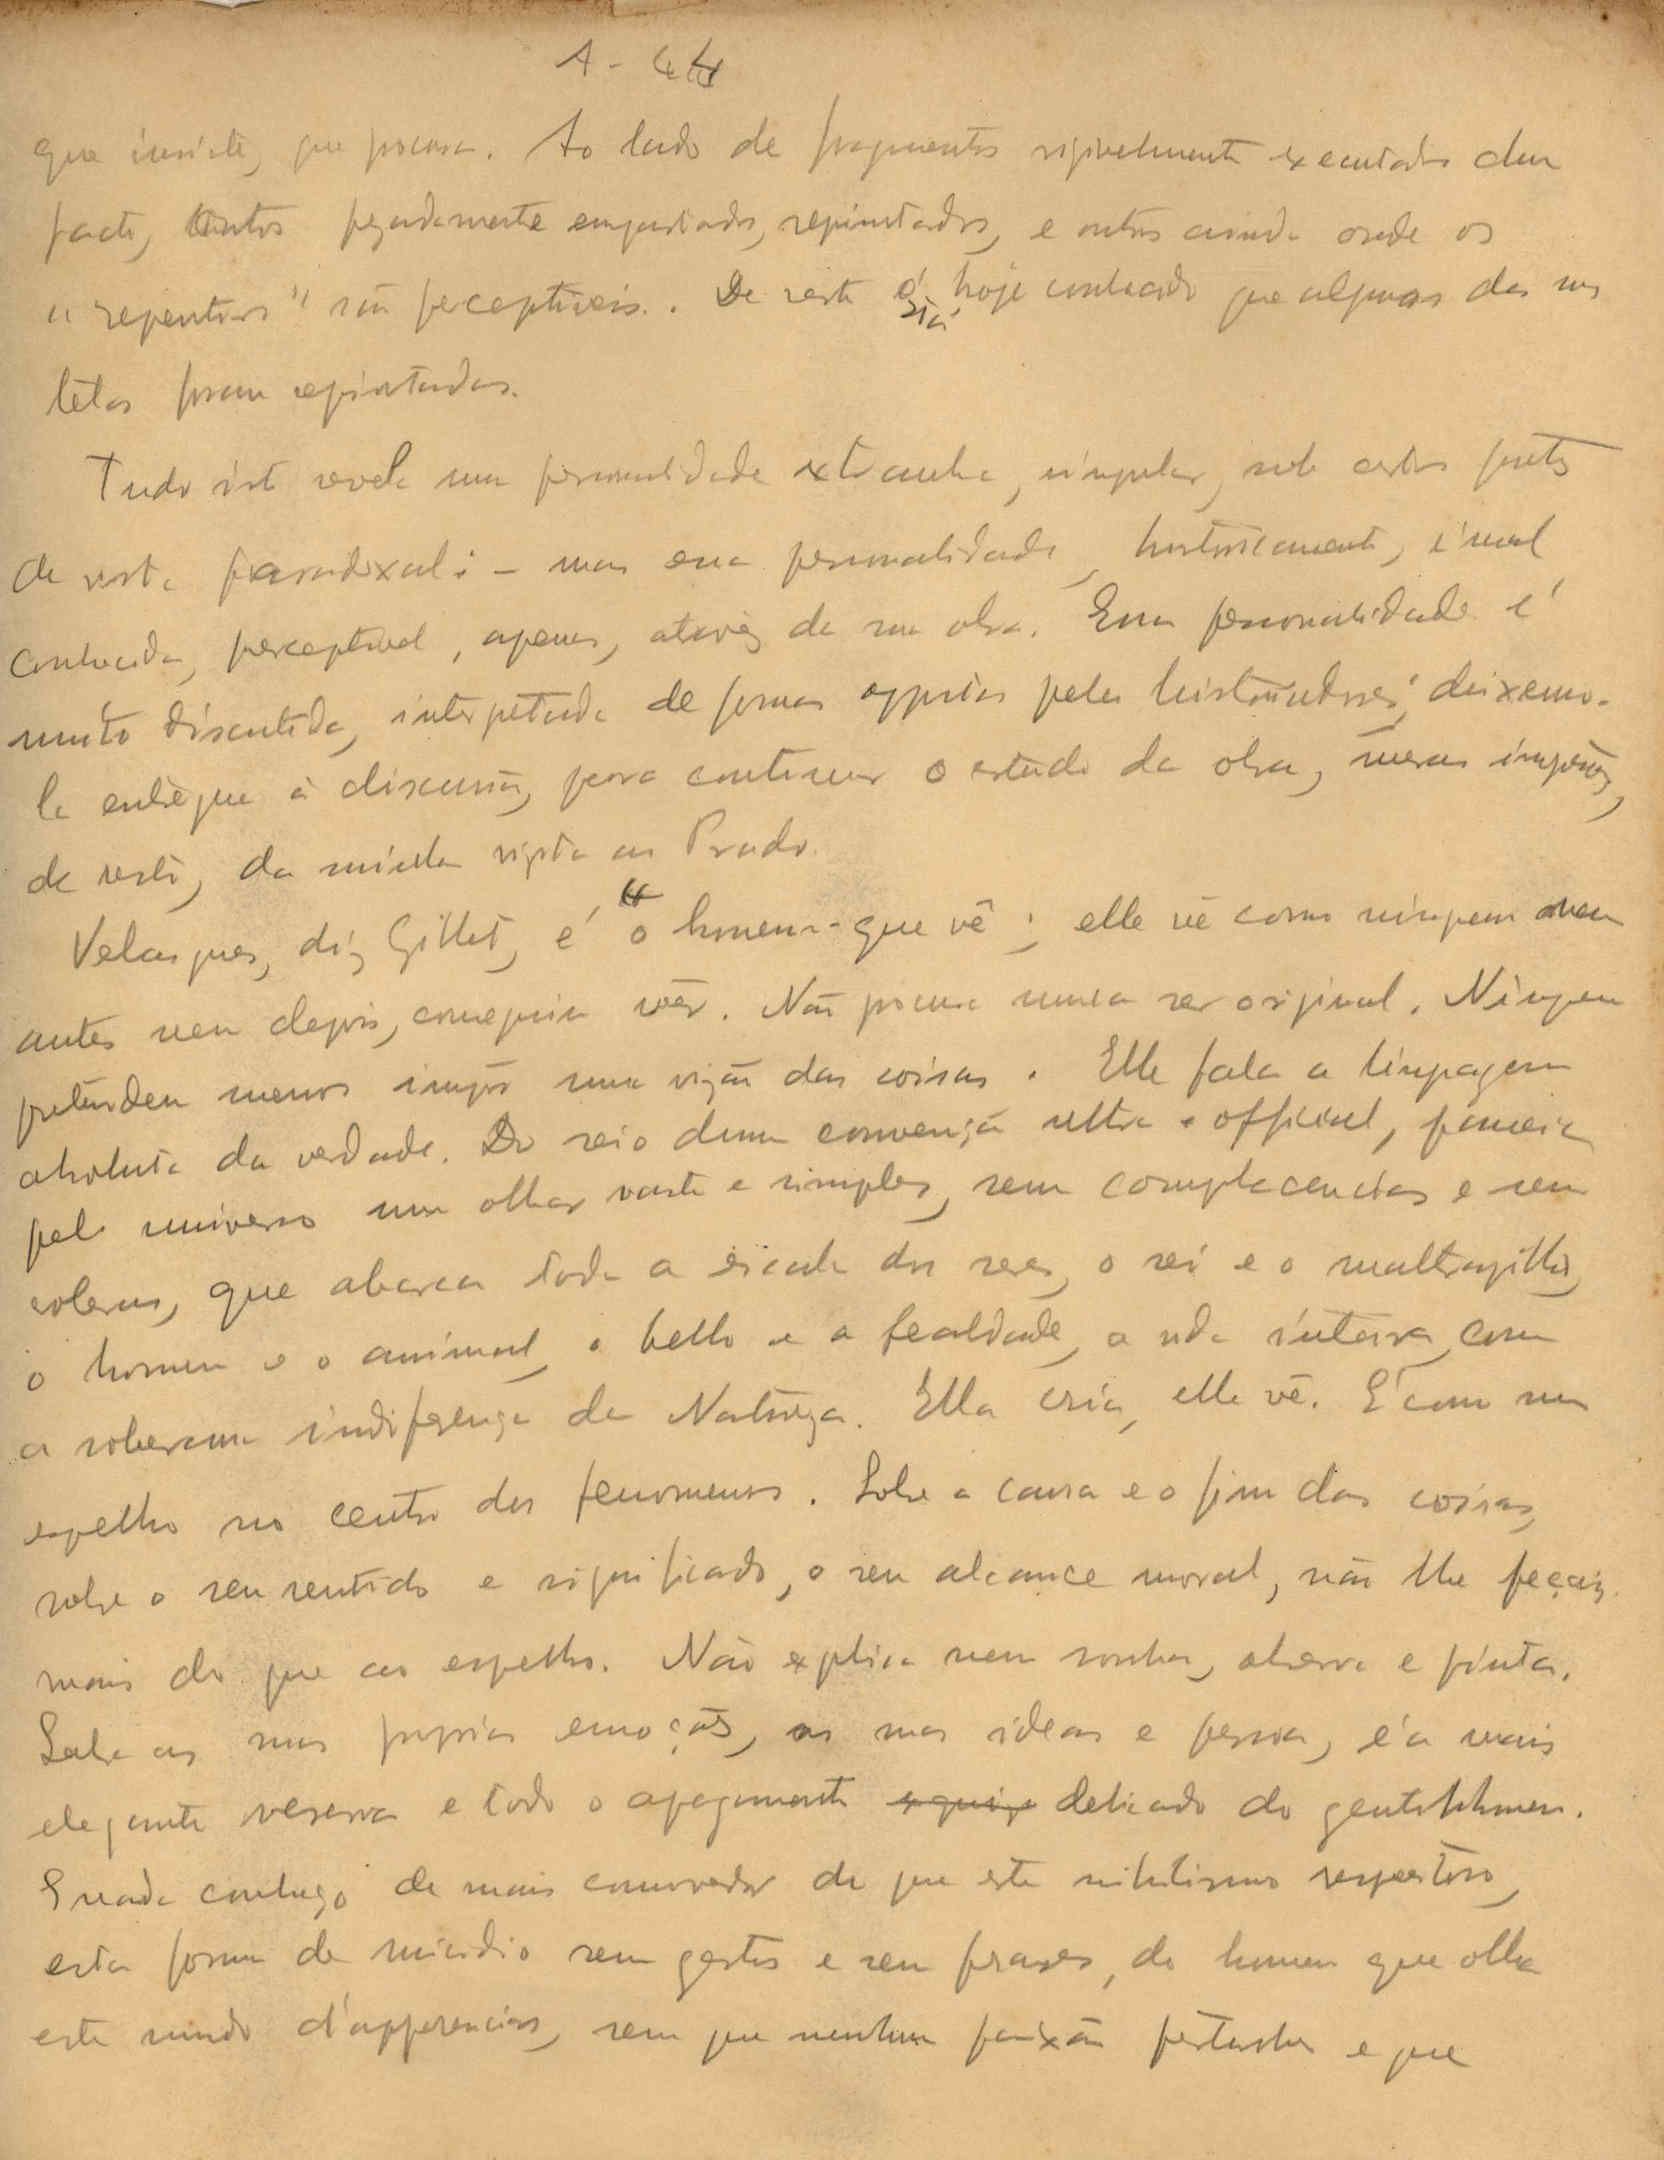 A - 44
que insiste, que procura. Ao lado de fragmentos visivelmente executados dum
facto, tantos pezadamente empastados, repintados, e outros ainda onde os
"repentirs" são perceptiveis. De resto é já hoje conhecido que algumas das suas
télas foram repintadas.
Tudo isto revela uma personalidade extranha, singular, sob certos pontos
de vista paradoxal: - mas essa personalidade, historicamente, é mal
conhecida, perceptivel, apenas, atravez da sua obra. Essa personalidade é
muito discutida, interpretada de formas oppostas pelos historiadores; deixemo-
la entregue à discussão, para continuar o estudo da obra, meras impressões,
de resto, da minha visita ao Prado.
Velasques, diz Gillet, é "o homem que vê; elle vê como ninguem nem
antes nem depois, conseguiu vêr. Não procura nunca ser original. Ninguem
pretendeu menos impôr uma vizão das coisas. Elle fala a linguagem
absoluta da verdade. Do seio duma convenção ultra-official, passeia
pelo universo um olhar vasto e simples, sem complacencias e sem
coleras, que abarca toda a escala dos seres, o rei e o maltrapilho,
o homem e o animal, o bello e a fealdade, a vida inteira, com
a soberana indiferença da Natureza. Ella cria, elle vê. É como um
espelho no centro dos fenomenos. Sobre a causa e o fim das coisas,
sobre o seu sentido e significado, o seu alcance moral, não lhe peçaes
mais do que ao espelho. Não explica nem sonha, observa e pinta.
Sobre as suas proprias emoções, as suas ideas e pessoa, é a mais
elegante reserva e todo o apagamento delicado do gentilhomem.
E nada conheço de mais comovedor do que este nihilismo respeitoso,
esta forma de suicidio sem gestos e sem frases, do homem que olha
este mundo d'apparencias, sem que nenhuma paixão perturbe e que